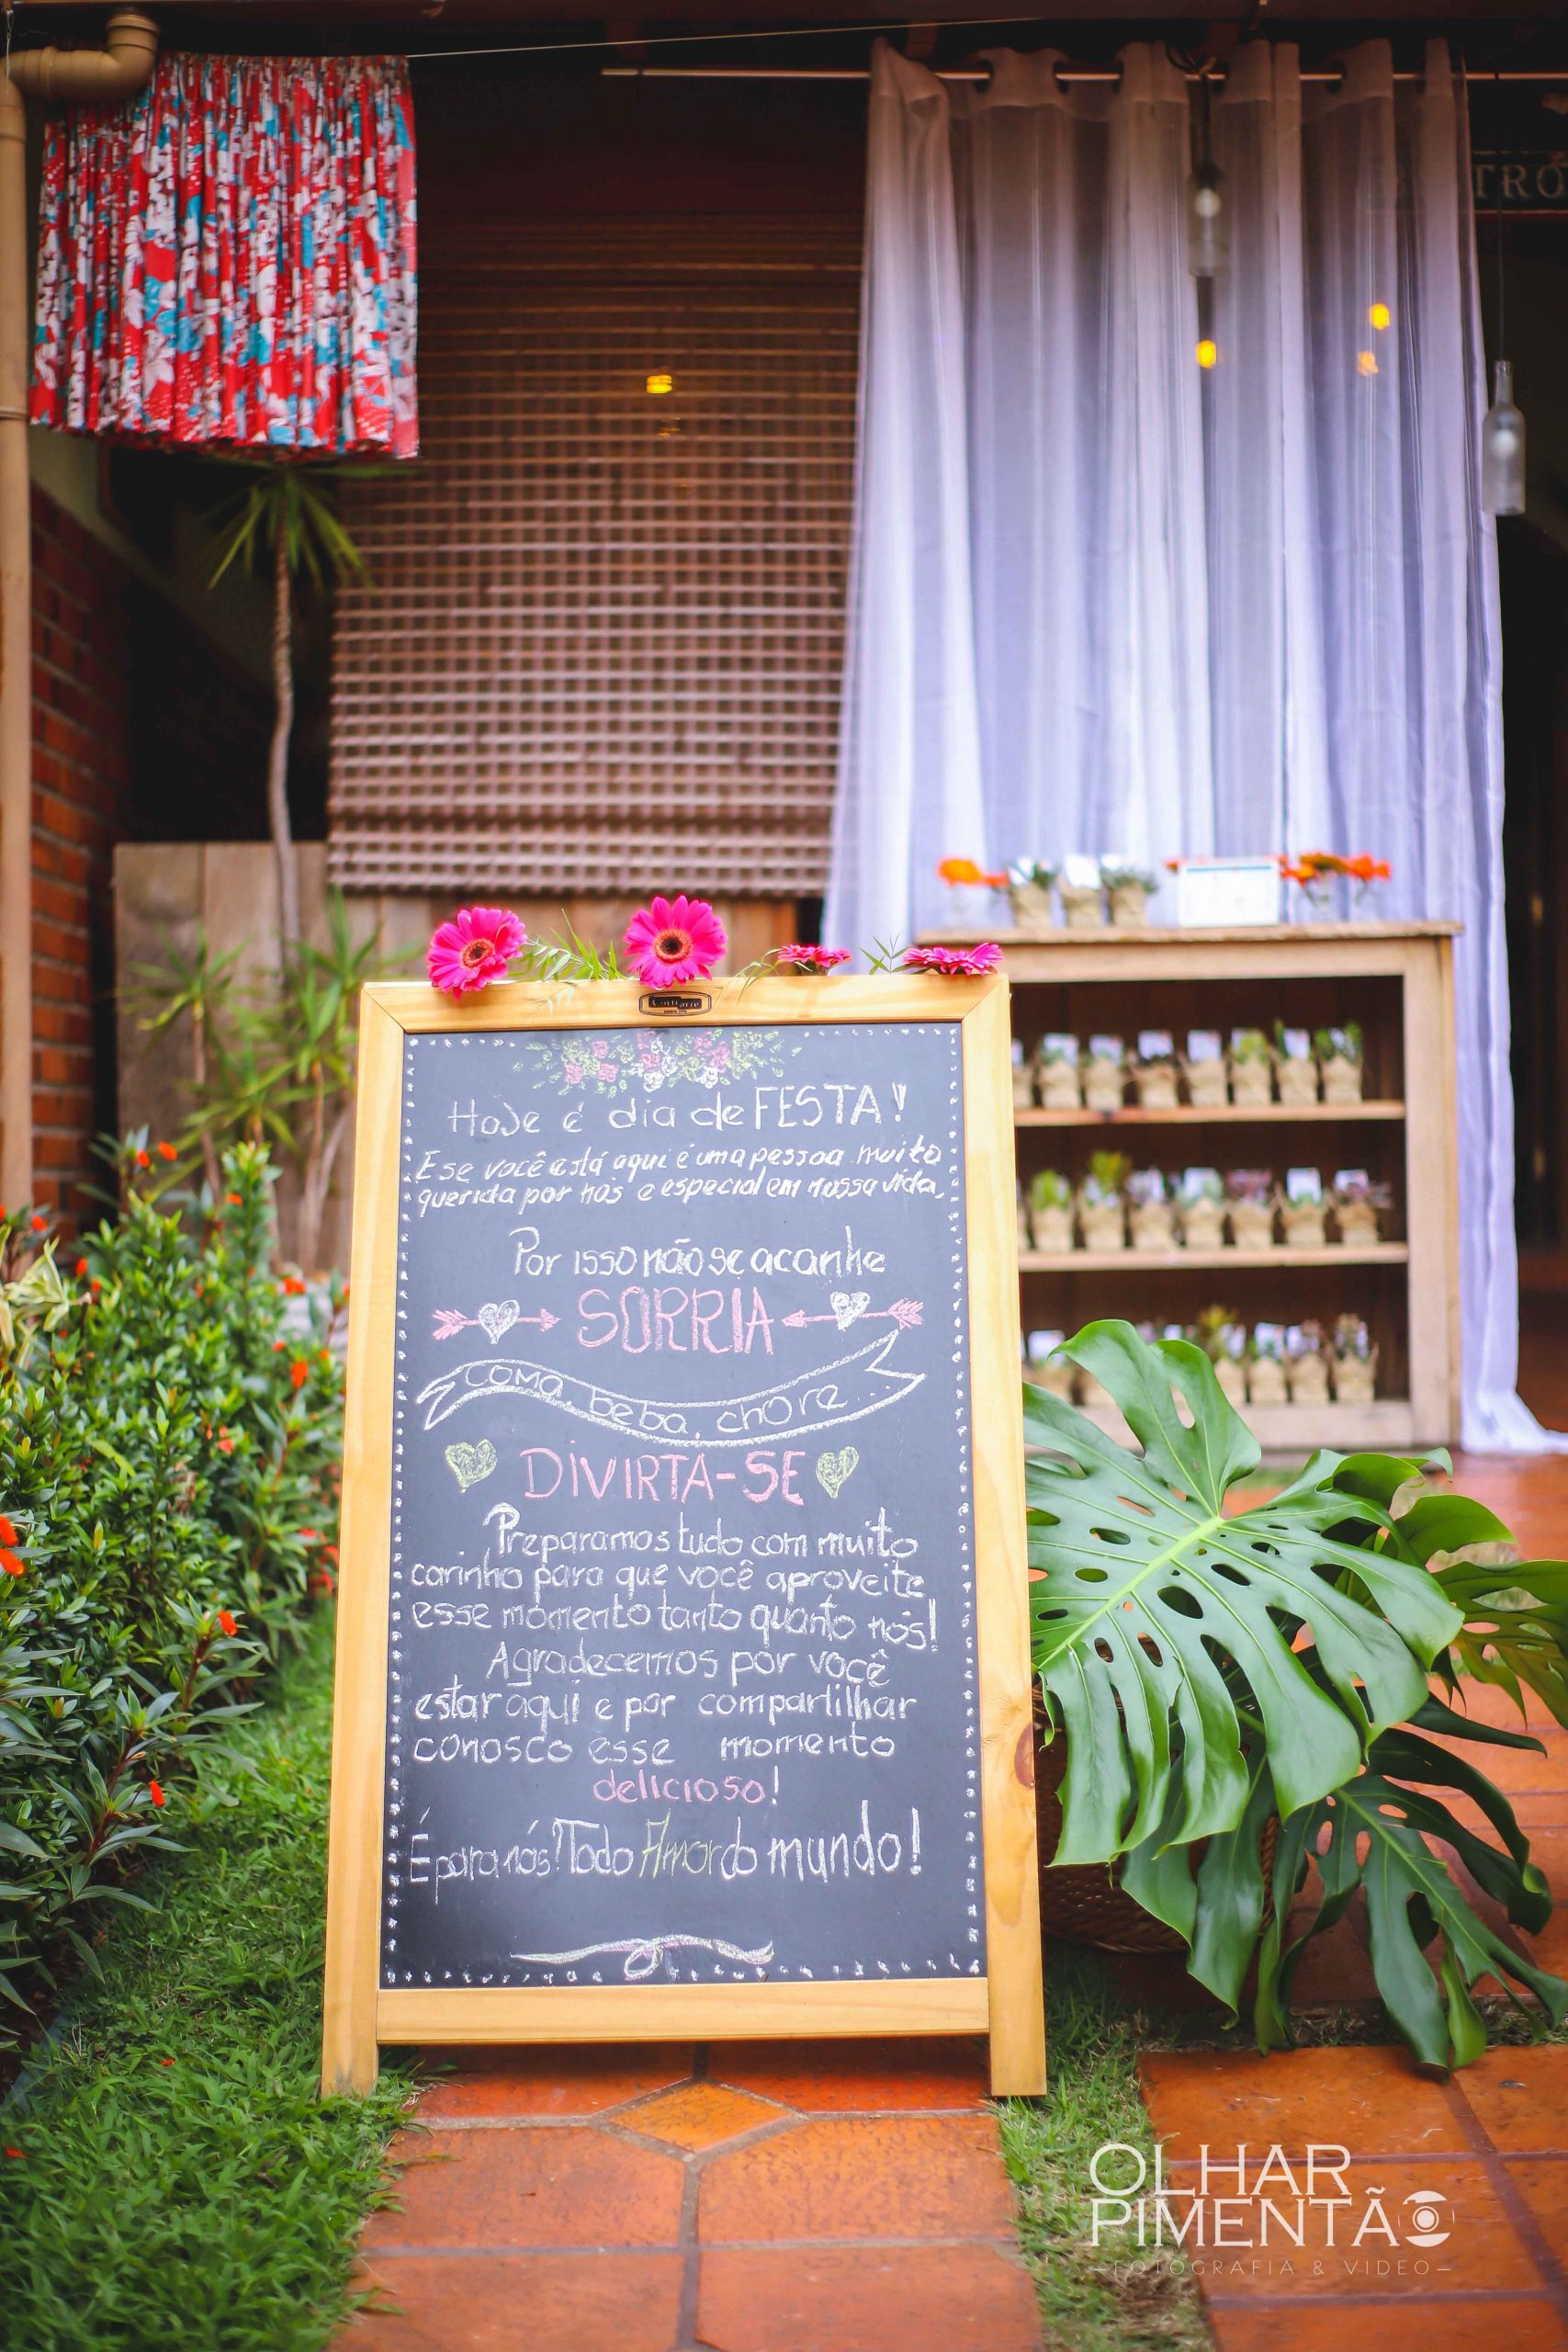 TRÔ
Hoje é dia de FESTA!
E se você está aqui é uma pessoa muito
querida por nós e especial em nossa vida,
Por isso não se acanhe
SORRIA
coma, beba, chore...
DIVIRTA-SE
Preparamos tudo com muito
carinho para que você aproveite
esse momento tanto quanto nós!
Agradecemos por você
estar aqui e por compartilhar
conosco esse momento
delicioso!
É para nós! Todo Amor do mundo!
OLHAR
PIMENTÃO
FOTOGRAFIA & VIDEO